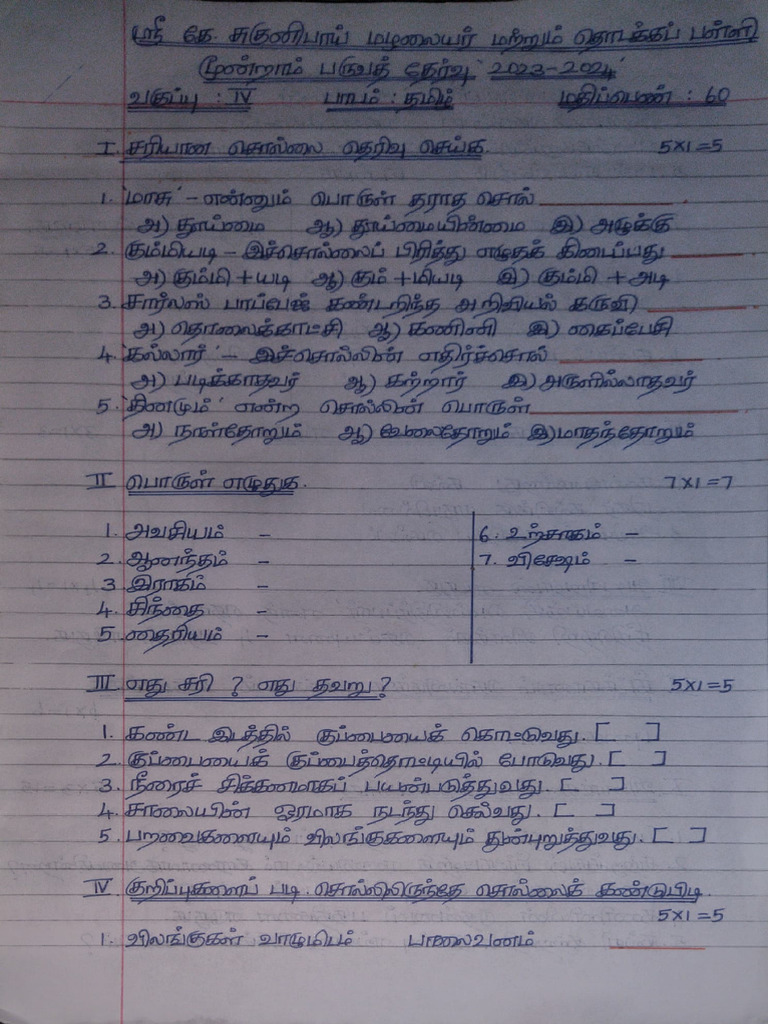 ஸ்ரீ கே. சுகுனிபாய் மழலையர் மற்றும் தொடக்கப் பள்ளி
மூன்றாம் பருவத் தேர்வு 2023-2024
வகுப்பு : IV பாடம் : தமிழ் மதிப்பெண் : 60
I. சரியான சொல்லை தெரிவு செய்க. 5x1=5
1. 'மாசு' - என்னும் பொருள் தராத சொல்
அ) தூய்மை ஆ) தூய்மையின்மை இ) அழுக்கு
2. கும்மியடி - இச்சொல்லைப் பிரித்து எழுதக் கிடைப்பது
அ) கும்மி + யடி ஆ) கும் + மியடி இ) கும்மி + அடி
3. சார்லஸ் பாப்பேஜ் கண்டறிந்த அறிவியல் கருவி
அ) தொலைக்காட்சி ஆ) கணினி இ) கைப்பேசி
4. 'கல்லார்' - இச்சொல்லின் எதிர்ச்சொல்
அ) படிக்காதவர் ஆ) கற்றார் இ) அருளில்லாதவர்
5. 'தினமும்' என்ற சொல்லின் பொருள்
அ) நாள்தோறும் ஆ) வேலைதோறும் இ) மாதந்தோறும்
II பொருள் எழுதுக. 7x1=7
1. அவசியம் -
2. ஆனந்தம் -
3. இராகம் -
4. சிந்தை -
5. தைரியம் -
6. உற்சாகம் -
7. விசேஷம் -
III எது சரி ? எது தவறு ? 5x1=5
1. கண்ட இடத்தில் குப்பையைக் கொட்டுவது. [ ]
2. குப்பையைக் குப்பைத்தொட்டியில் போடுவது. [ ]
3. நீரைச் சிக்கனமாகப் பயன்படுத்துவது. [ ]
4. சாலையின் ஓரமாக நடந்து செல்வது. [ ]
5. பறவைகளையும் விலங்குகளையும் துன்புறுத்துவது. [ ]
IV குறிப்புகளைப் படி. சொல்லிலிருந்தே சொல்லைக் கண்டுபிடி.
5x1=5
1. விலங்குகள் வாழுமிடம் பாலைவனம்